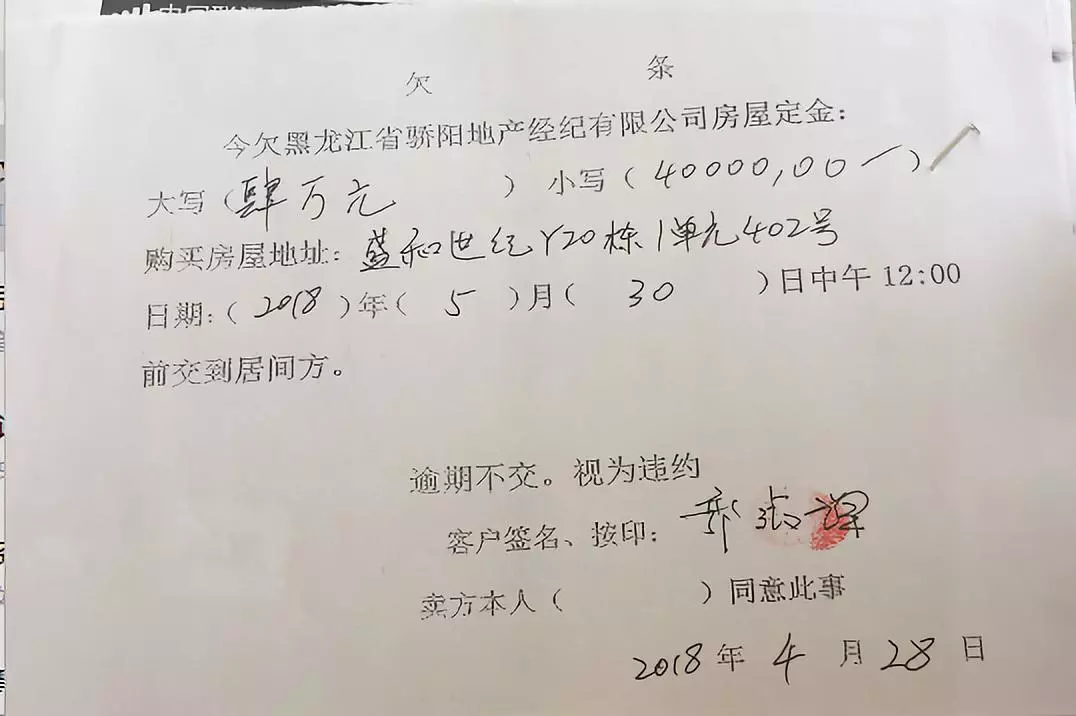 欠 条
今欠黑龙江省骄阳地产经纪有限公司房屋定金:
大写(肆万元 ) 小写(40000,00 )
购买房屋地址:盛和世纪Y20栋1单元402号
日期:( 2018 )年( 5 )月( 30 )日中午12:00
前交到居间方。
逾期不交。视为违约
客户签名、按印:
卖方本人( )同意此事
2018年4月28日